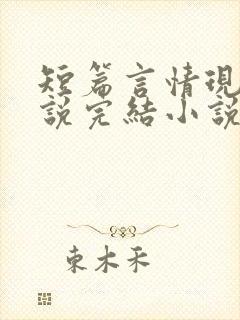 短篇言情現
說完結小說
東木禾